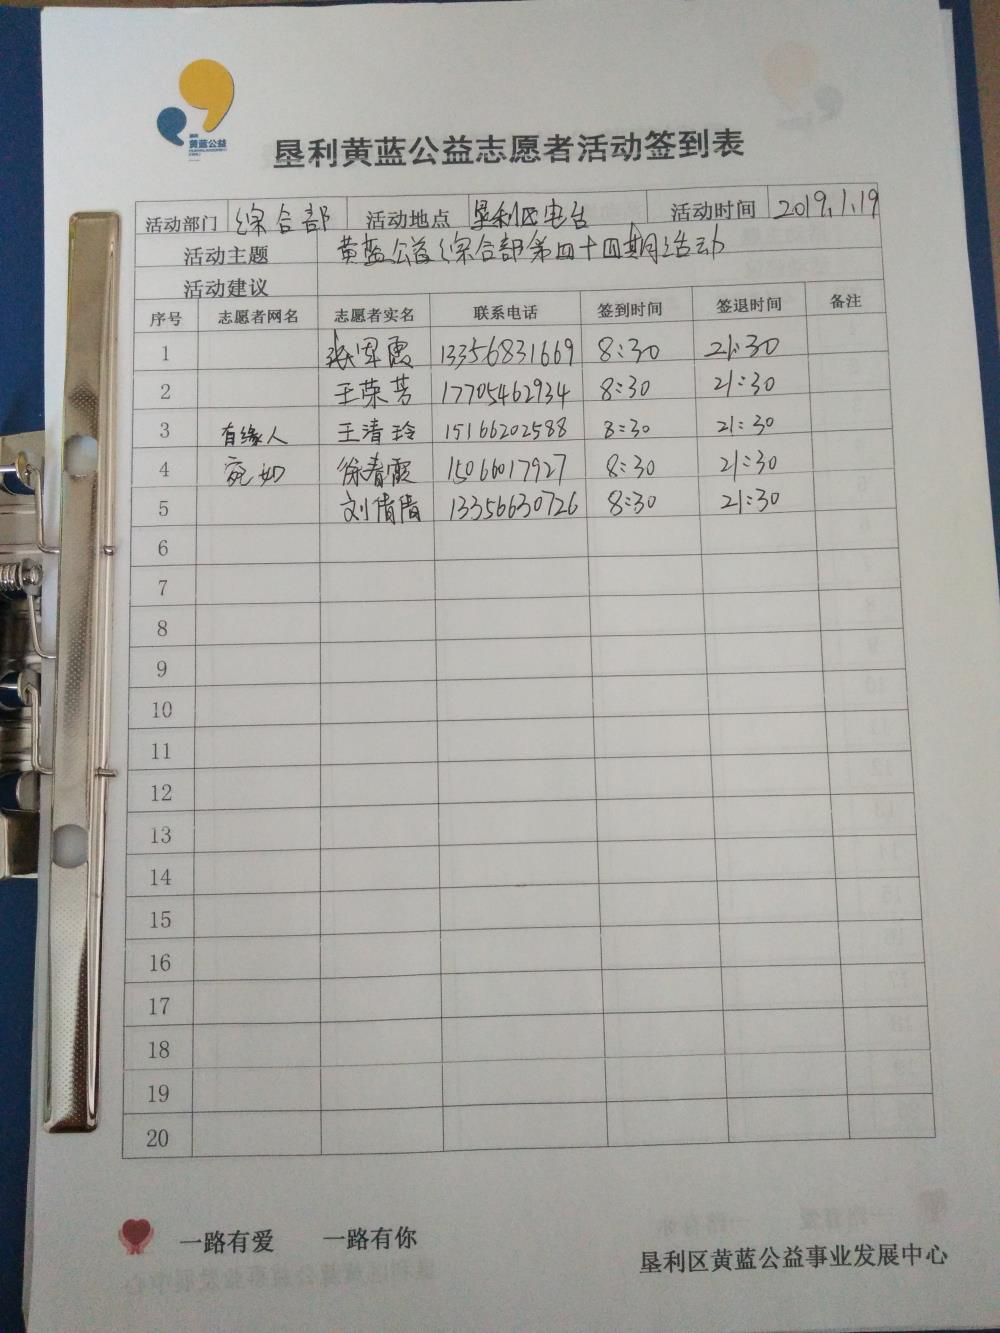 黄蓝公益
垦利黄蓝公益志愿者活动签到表
活动部门 综合部 活动地点 垦利区电台 活动时间 2019.1.19
活动主题 黄蓝公益综合部第四十四期活动
活动建议
序号 志愿者网名 志愿者实名 联系电话 签到时间 签退时间 备注
1 张军霞 13356831669 8:30 21:30
2 王荣芳 17705462934 8:30 21:30
3 有缘人 王清玲 15166202588 8:30 21:30
4 宛如 徐春霞 15066017927 8:30 21:30
5 刘倩倩 13356630726 8:30 21:30
6
7
8
9
10
11
12
13
14
15
16
17
18
19
20
一路有爱 一路有你
垦利区黄蓝公益事业发展中心